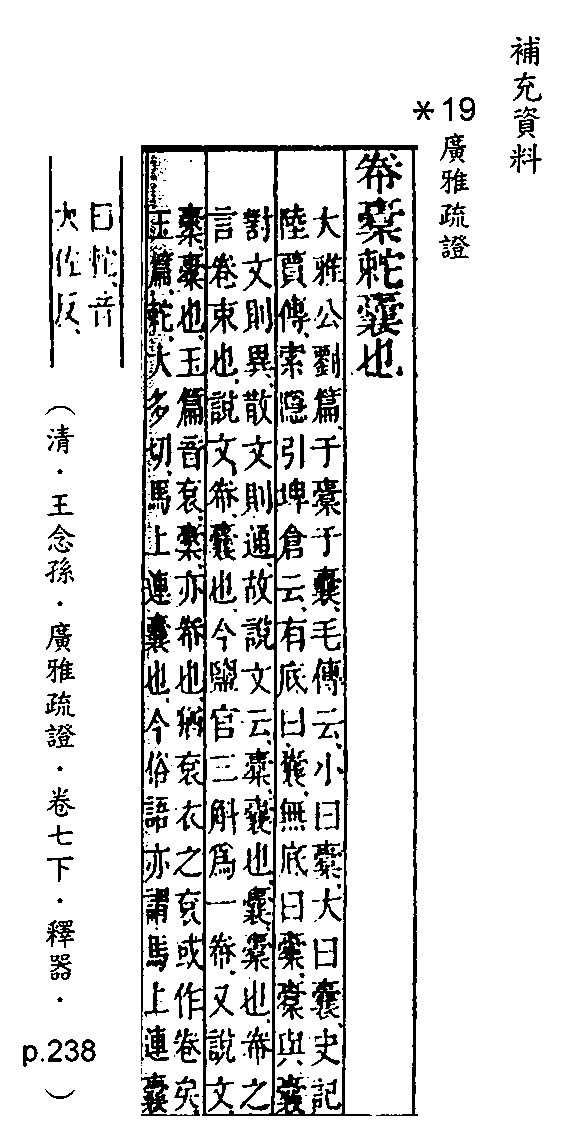 補充資料
*19 廣雅疏證
帣橐囊也
大雅公劉篇于橐于囊毛傳云小曰橐大曰囊史記
陸賈傳索隱引埤倉云有底曰囊無底曰橐橐與囊
對文則異散文則通故說文云橐囊也囊橐也帣之
言卷束也說文帣囊也今鹽官三斛爲一帣又說文
㯻橐也玉篇音衮㯻亦帣也猶衮衣之衮或作卷矣
玉篇大多切馬上連囊也今俗語亦謂馬上連囊
曰音
大佐反
（清．王念孫．廣雅疏證．卷七下．釋器．p.238）